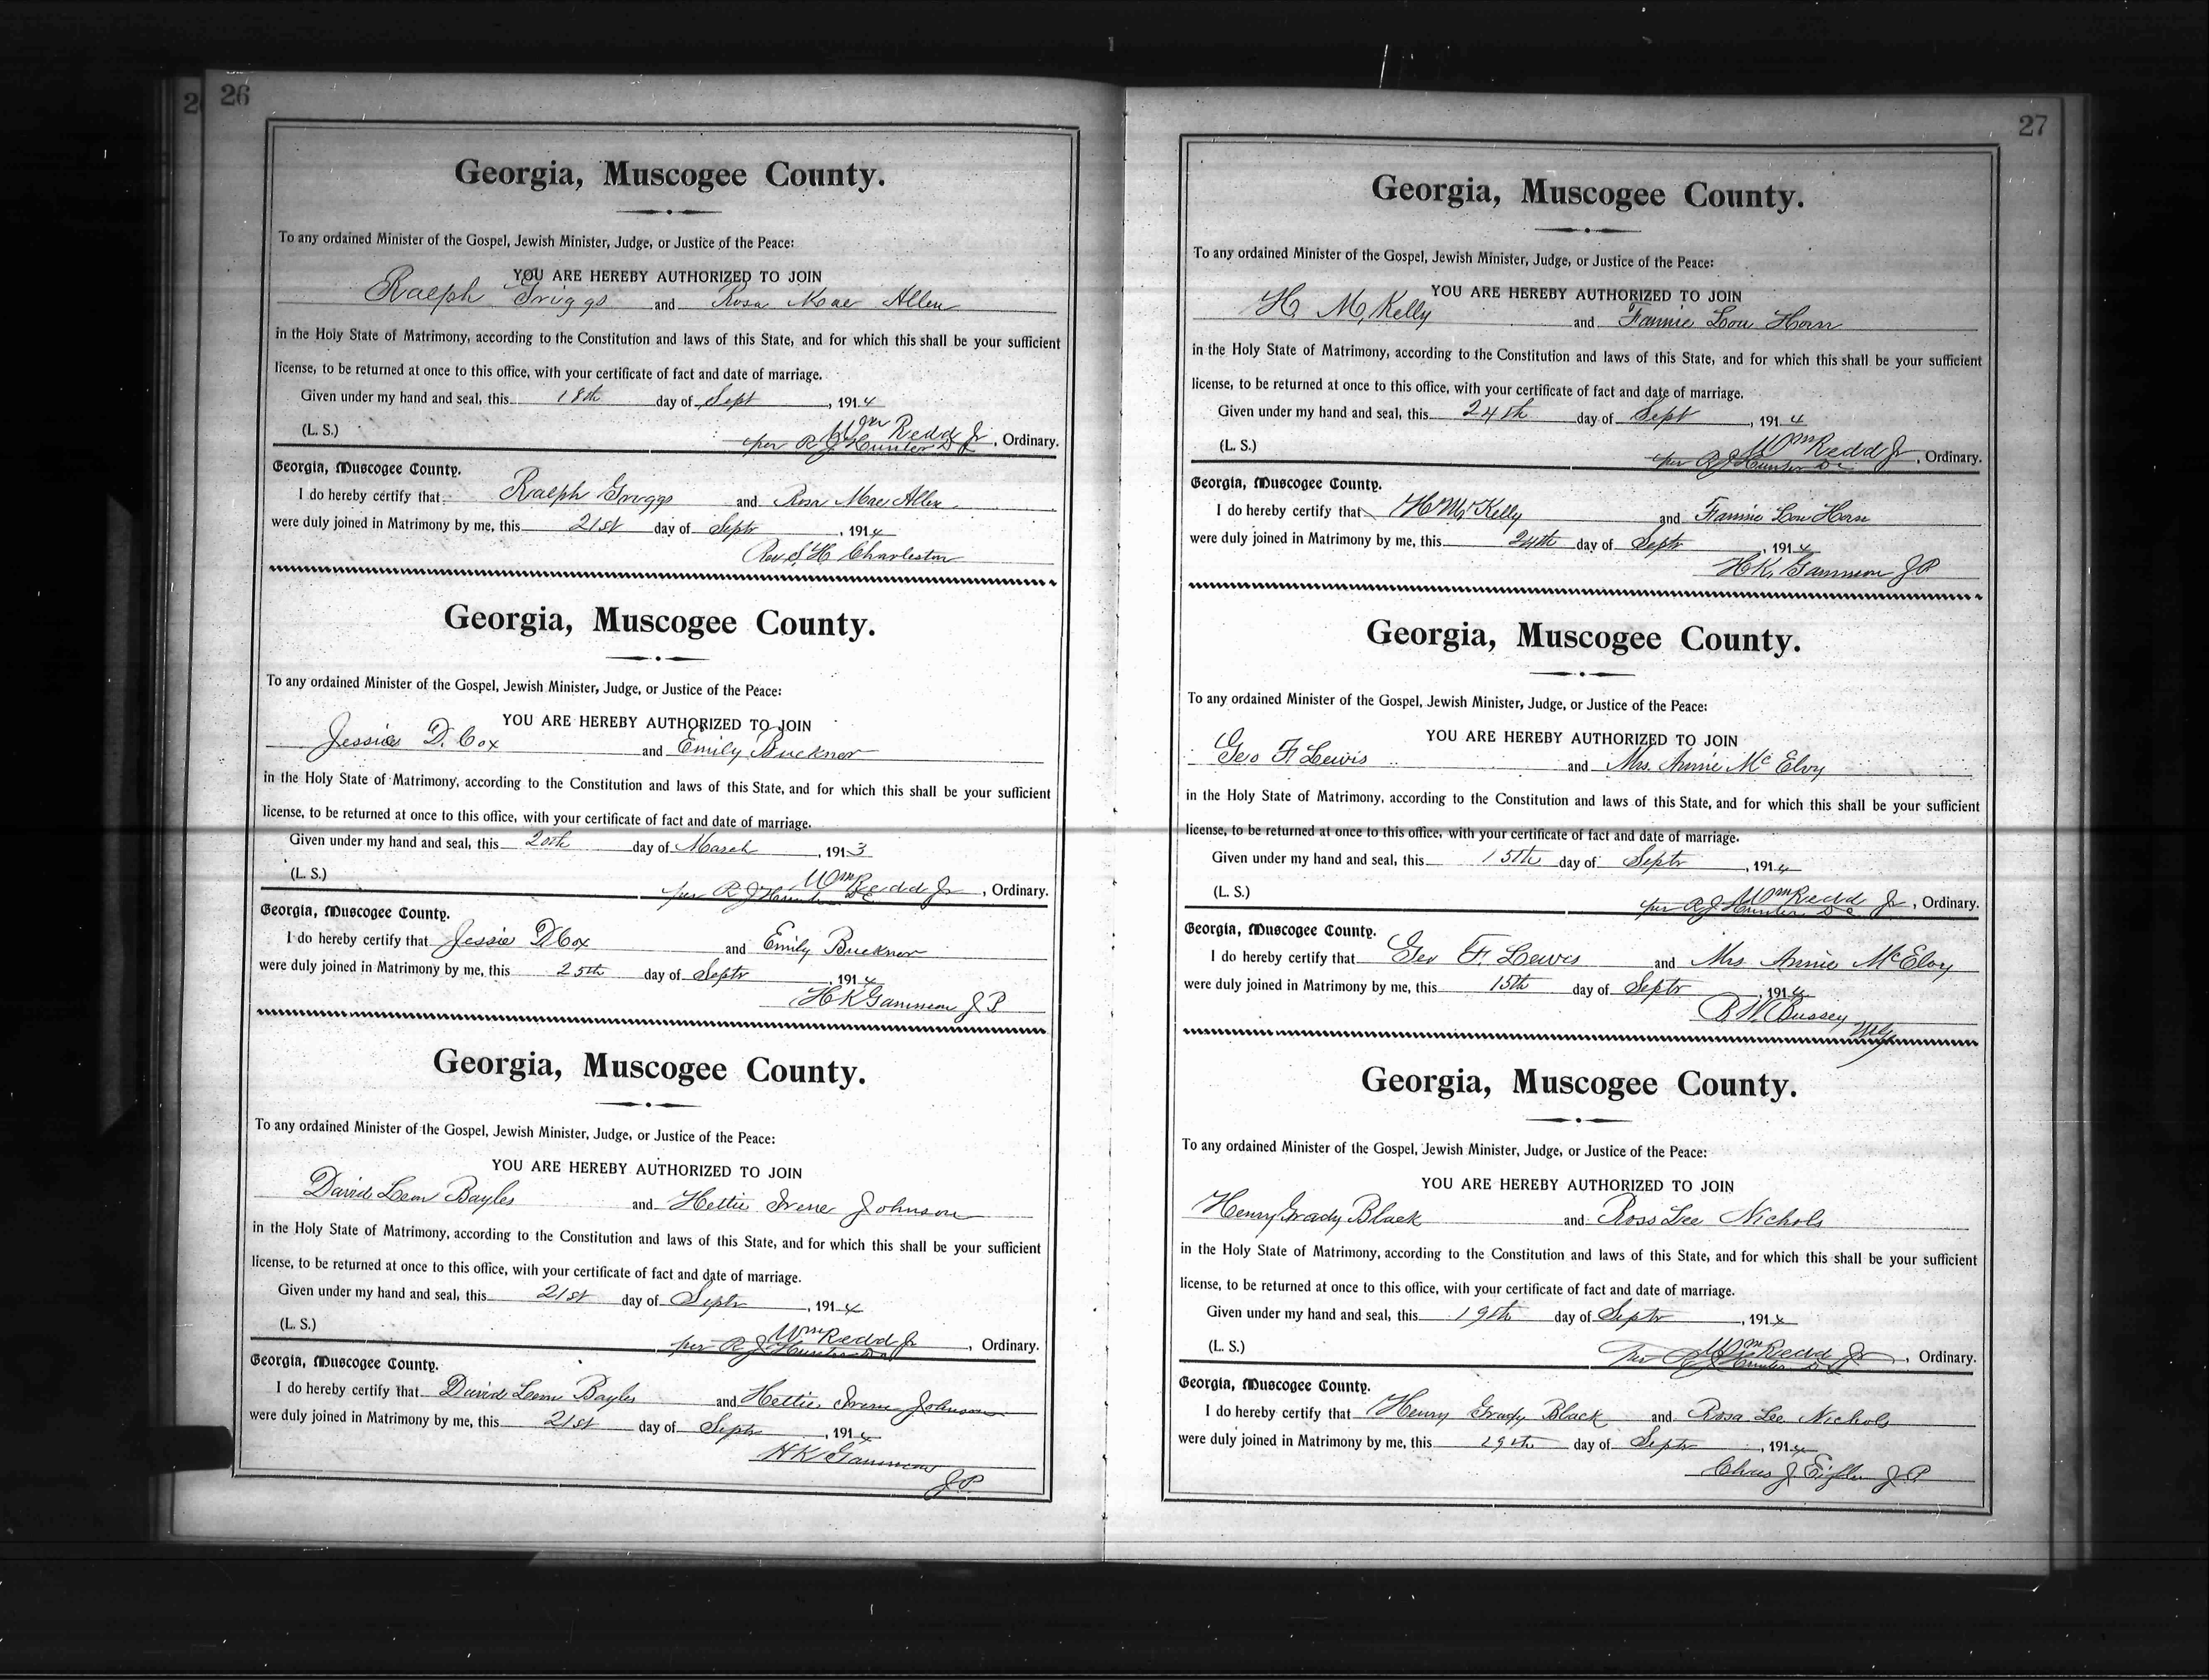 26
Georgia, Muscogee County.
To any ordained Minister of the Gospel, Jewish Minister, Judge, or Justice of the Peace:
YOU ARE HEREBY AUTHORIZED TO JOIN
Ralph Griggs and Rosa Mae Allen
in the Holy State of Matrimony, according to the Constitution and laws of this State, and for which this shall be your sufficient
license, to be returned at once to this office, with your certificate of fact and date of marriage.
Given under my hand and seal, this 18th day of Sept, 1914
Wm Redd Jr
(L. S.) per R J Hunter D C, Ordinary.
Georgia, Muscogee County.
I do hereby certify that Ralph Griggs and Rosa Mae Allen
were duly joined in Matrimony by me, this 21st day of Septr, 1914
Rev S. H Charleston
Georgia, Muscogee County.
To any ordained Minister of the Gospel, Jewish Minister, Judge, or Justice of the Peace:
YOU ARE HEREBY AUTHORIZED TO JOIN
Jessie D. Cox and Emily Buckner
in the Holy State of Matrimony, according to the Constitution and laws of this State, and for which this shall be your sufficient
license, to be returned at once to this office, with your certificate of fact and date of marriage.
Given under my hand and seal, this 20th day of March, 1913
Wm Redd Jr
(L. S.) per R J Hunter D C, Ordinary.
Georgia, Muscogee County.
I do hereby certify that Jessie D Cox and Emily Buckner
were duly joined in Matrimony by me, this 25th day of Septr, 1914
H K Gammon J P
Georgia, Muscogee County.
To any ordained Minister of the Gospel, Jewish Minister, Judge, or Justice of the Peace:
YOU ARE HEREBY AUTHORIZED TO JOIN
David Leon Bayles and Hettie Irene Johnson
in the Holy State of Matrimony, according to the Constitution and laws of this State, and for which this shall be your sufficient
license, to be returned at once to this office, with your certificate of fact and date of marriage.
Given under my hand and seal, this 21st day of Septr, 1914
Wm Redd Jr
(L. S.) per R J Hunter, Ordinary.
Georgia, Muscogee County.
I do hereby certify that David Leon Bayles and Hettie Irene Johnson
were duly joined in Matrimony by me, this 21st day of Septr, 1914
H K Gammon
J P.
27
Georgia, Muscogee County.
To any ordained Minister of the Gospel, Jewish Minister, Judge, or Justice of the Peace:
YOU ARE HEREBY AUTHORIZED TO JOIN
H M, Kelly and Fannie Lou Horn
in the Holy State of Matrimony, according to the Constitution and laws of this State, and for which this shall be your sufficient
license, to be returned at once to this office, with your certificate of fact and date of marriage.
Given under my hand and seal, this 24th day of Sept, 1914
Wm Redd Jr
(L. S.) per R J Hunter D C, Ordinary.
Georgia, Muscogee County.
I do hereby certify that H M, Kelly and Fannie Lou Horn
were duly joined in Matrimony by me, this 24th day of Septr, 1914
H K, Gammon J P
Georgia, Muscogee County.
To any ordained Minister of the Gospel, Jewish Minister, Judge, or Justice of the Peace:
YOU ARE HEREBY AUTHORIZED TO JOIN
Geo F Lewis and Mrs. Annie Mc Elvy
in the Holy State of Matrimony, according to the Constitution and laws of this State, and for which this shall be your sufficient
license, to be returned at once to this office, with your certificate of fact and date of marriage.
Given under my hand and seal, this 15th day of Septr, 1914
Wm Redd Jr
(L. S.) per R J Hunter D C, Ordinary.
Georgia, Muscogee County.
I do hereby certify that Geo F. Lewis and Mrs Annie McElvy
were duly joined in Matrimony by me, this 15th day of Septr, 1914
R W. Bussey
Georgia, Muscogee County.
To any ordained Minister of the Gospel, Jewish Minister, Judge, or Justice of the Peace:
YOU ARE HEREBY AUTHORIZED TO JOIN
Henry Grady Black and Ross Lee Nichols
in the Holy State of Matrimony, according to the Constitution and laws of this State, and for which this shall be your sufficient
license, to be returned at once to this office, with your certificate of fact and date of marriage.
Given under my hand and seal, this 19th day of Septr, 1914
Wm Redd Jr
(L. S.) Per R J Hunter D C, Ordinary.
Georgia, Muscogee County.
I do hereby certify that Henry Grady Black and Rosa Lee Nichols
were duly joined in Matrimony by me, this 19th day of Septr, 1914
Chas J Eifler J P